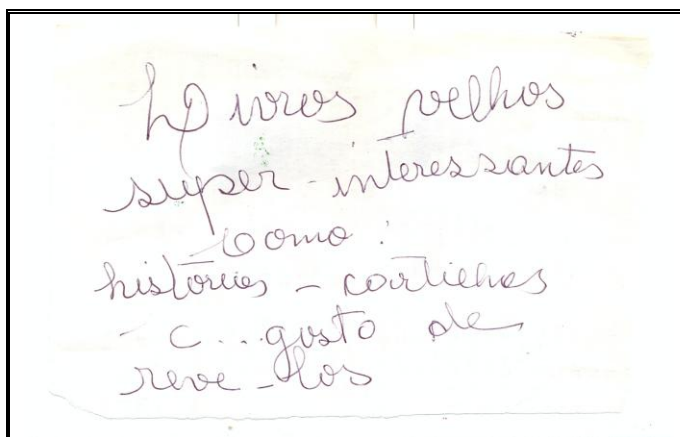 Livros velhos
super-interessantes
como:
histórias - cartilhas
- C... gosto de
reve-los